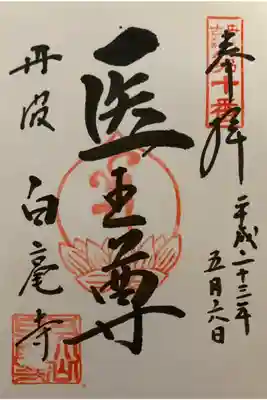 奉拝
平成二十三年
五月六日
医王尊
丹波
白毫寺